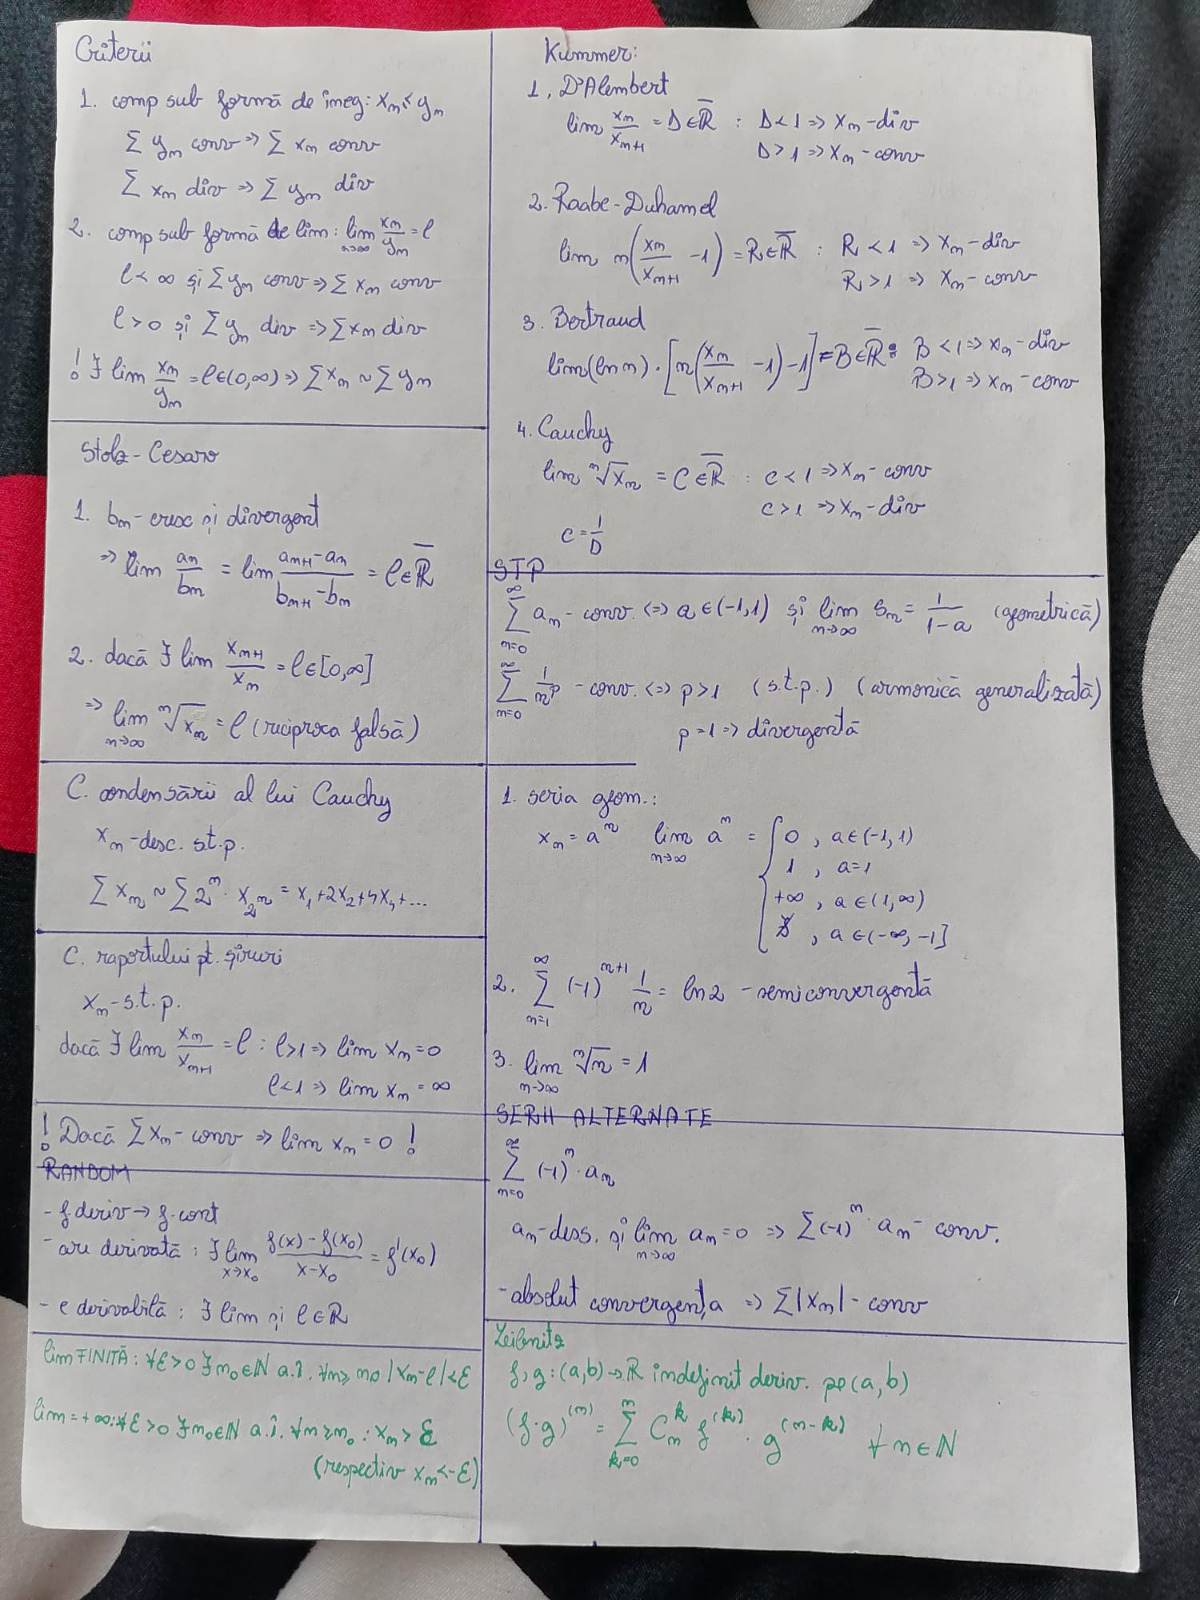 Criterii
1. comp sub formă de ineg: xₙ ≤ yₙ
∑ yₙ conv => ∑ xₙ conv
∑ xₙ div => ∑ yₙ div
2. comp sub formă de lim: lim n→∞ xₙ/yₙ = l
l < ∞ și ∑ yₙ conv => ∑ xₙ conv
l > 0 și ∑ yₙ div => ∑ xₙ div
! ∃ lim xₙ/yₙ = l ∈ (0,∞) => ∑ xₙ ~ ∑ yₙ
Stolz-Cesaro
1. bₙ - cresc și divergent
=> lim aₙ/bₙ = lim (aₙ₊₁ - aₙ)/(bₙ₊₁ - bₙ) = l ∈ R̅
2. dacă ∃ lim xₙ₊₁/xₙ = l ∈ [0,∞]
=> lim n→∞ ⁿ√xₙ = l (reciproca falsă)
C. condensării al lui Cauchy
xₙ - desc. s.t.p.
∑ xₙ ~ ∑ 2ⁿ · x_2ⁿ = x₁ + 2x₂ + 4x₄ + ...
C. raportului pt. șiruri
xₙ - s.t.p.
dacă ∃ lim xₙ/xₙ₊₁ = l : l > 1 => lim xₙ = 0
l < 1 => lim xₙ = ∞
! Dacă ∑ xₙ - conv => lim xₙ = 0 !
RANDOM
- f deriv → f cont
- are derivată : ∃ lim x→x₀ (f(x) - f(x₀))/(x - x₀) = f'(x₀)
- e derivabilă : ∃ lim și l ∈ R
lim FINITĂ : ∀ε > 0 ∃ n₀ ∈ N a.î. ∀n ≥ n₀ |xₙ - l| < ε
lim = +∞ : ∀ε > 0 ∃ n₀ ∈ N a.î. ∀n ≥ n₀ : xₙ > ε
(respectiv xₙ < -ε)
Kummer:
1. D'Alembert
lim xₙ/xₙ₊₁ = D ∈ R̅ : D < 1 => xₙ - div
D > 1 => xₙ - conv
2. Raabe-Duhamel
lim n(xₙ/xₙ₊₁ - 1) = R ∈ R̅ : R < 1 => xₙ - div
R > 1 => xₙ - conv
3. Bertraud
lim (ln n) · [n(xₙ/xₙ₊₁ - 1) - 1] = B ∈ R̅ : B < 1 => xₙ - div
B > 1 => xₙ - conv
4. Cauchy
lim ⁿ√xₙ = C ∈ R̅ : C < 1 => xₙ - conv
C > 1 => xₙ - div
C = 1/D
STP
∑ n=0 ∞ aₙ - conv. <=> a ∈ (-1,1) și lim n→∞ sₙ = 1/(1-a) (geometrică)
∑ n=0 ∞ 1/nᵖ - conv. <=> p > 1 (s.t.p.) (armonică generalizată)
p = 1 => divergentă
1. seria geom.:
xₙ = aⁿ lim n→∞ aⁿ = { 0 , a ∈ (-1,1)
1 , a = 1
+∞ , a ∈ (1,∞)
∄ , a ∈ (-∞,-1]
2. ∑ n=1 ∞ (-1)ⁿ⁺¹ 1/n = ln 2 - semiconvergentă
3. lim n→∞ ⁿ√n = 1
SERII ALTERNATE
∑ n=0 ∞ (-1)ⁿ · aₙ
aₙ - dess. și lim n→∞ aₙ = 0 => ∑ (-1)ⁿ · aₙ - conv.
- absolut convergența => ∑ |xₙ| - conv
Leibnitz
f, g : (a,b) → R indefinit deriv. pe (a,b)
(f·g)⁽ⁿ⁾ = ∑ k=0 n Cₙᵏ f⁽ᵏ⁾ · g⁽ⁿ⁻ᵏ⁾ ∀ n ∈ N